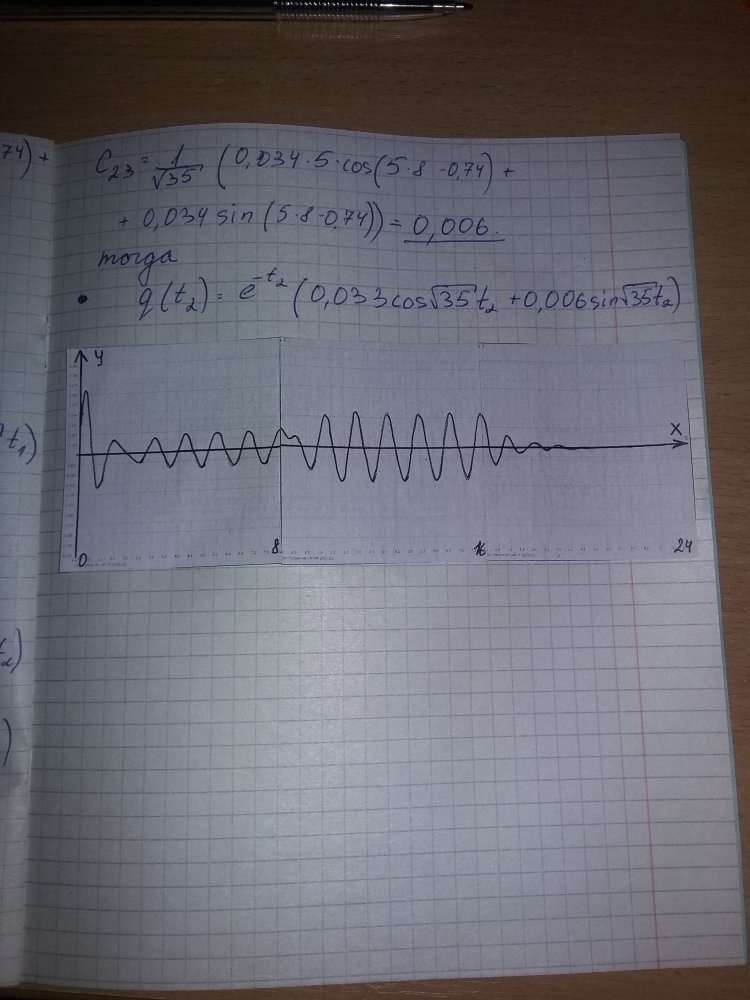 74) +
C₂₃ = 1/√35 (0,034·5·cos(5·8 -0,74) +
+ 0,034 sin (5·8-0,74)) = 0,006.
тогда
• q(t₂) = e^(-t₂) (0,033cos√35 t₂ + 0,006sin√35 t₂)
y
t₁)
x
0 8 16 24
t₂)
)